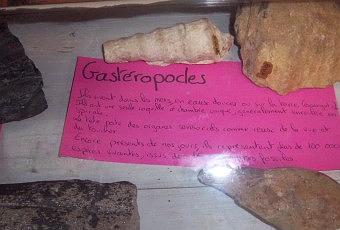 Gastéropodes
Ils vivent dans les mers, en eaux douces ou sur la terre
Ils ont une seule coquille à chambre unique, généralement enroulée en
spirale.
La tête porte des organes sensoriels comme ceux de la vue et
du toucher.
Encore présents de nos jours, ils représentent plus de 100 000
espèces vivantes, issus de fossiles.